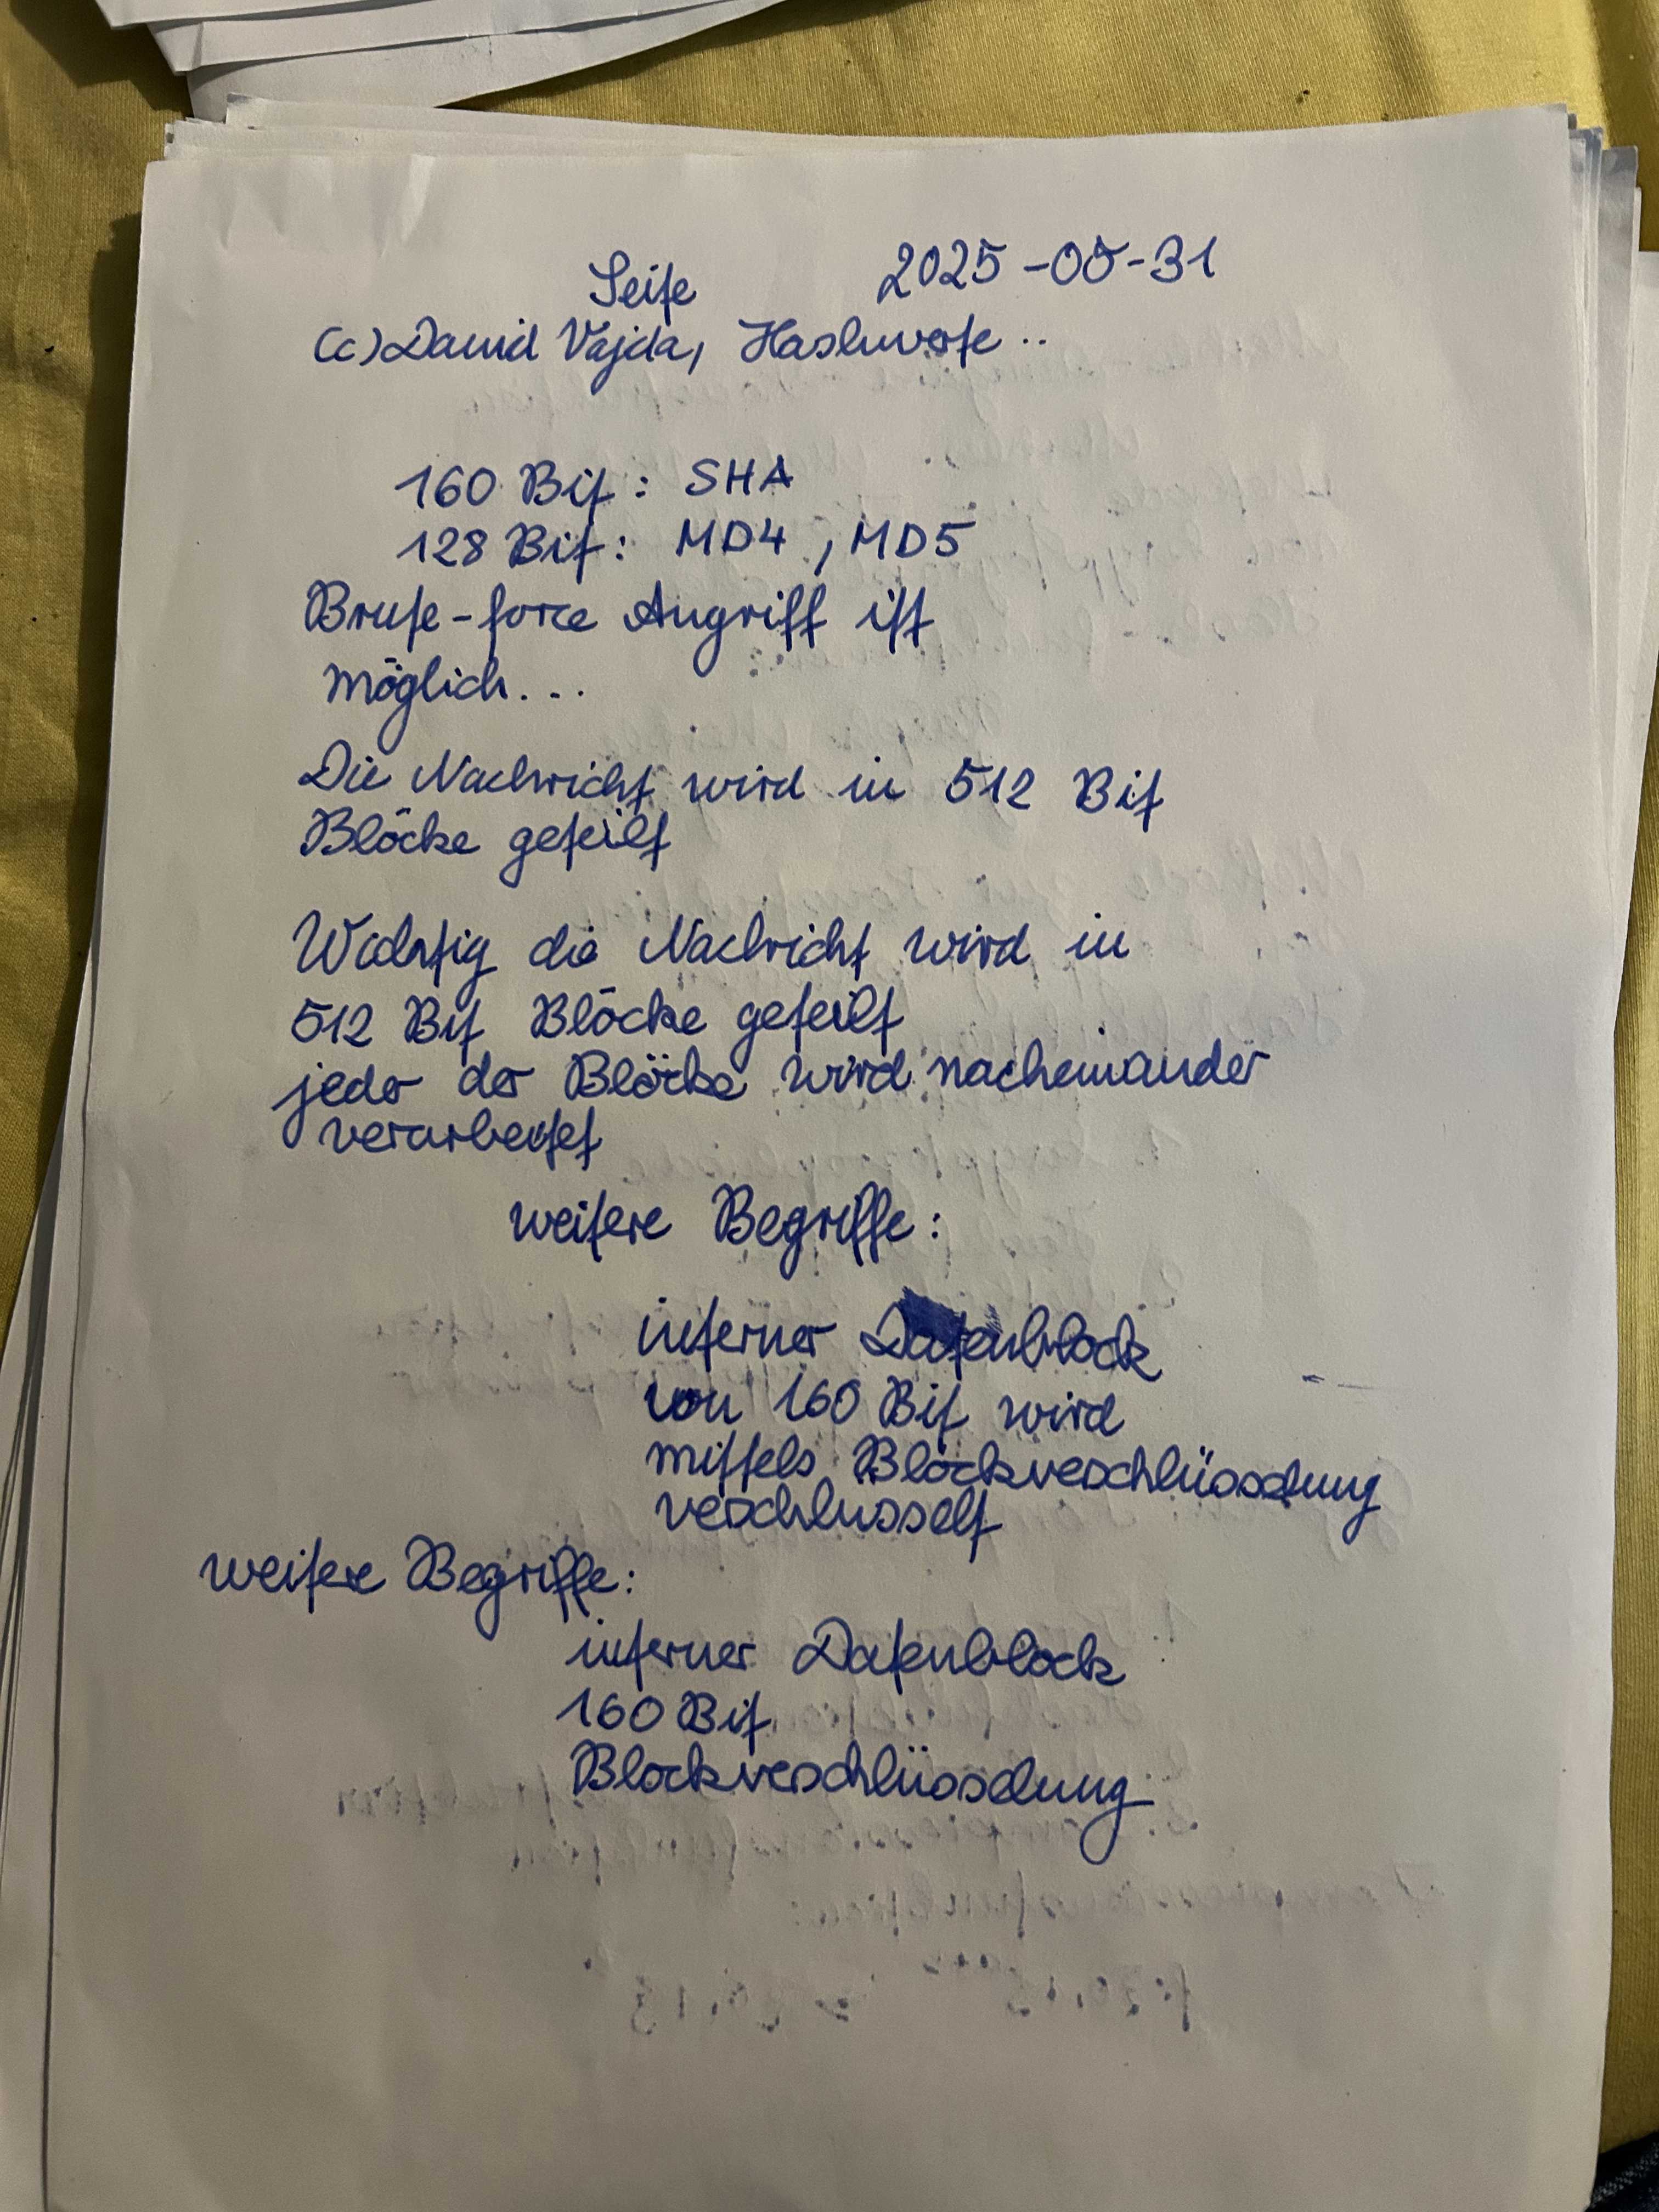 Seite 2025-05-31
(c) David Vajda, Hashwerte ..
160 Bit: SHA
128 Bit: MD4, MD5
Brute-force Angriff ist
möglich...
Die Nachricht wird in 512 Bit
Blöcke geteilt
Wichtig die Nachricht wird in
512 Bit Blöcke geteilt
jeder der Blöcke wird nacheinander
verarbeitet
weitere Begriffe:
interner Datenblock
von 160 Bit wird
mittels Blockverschlüsselung
verschlüsselt
weitere Begriffe:
interner Datenblock
160 Bit
Blockverschlüsselung